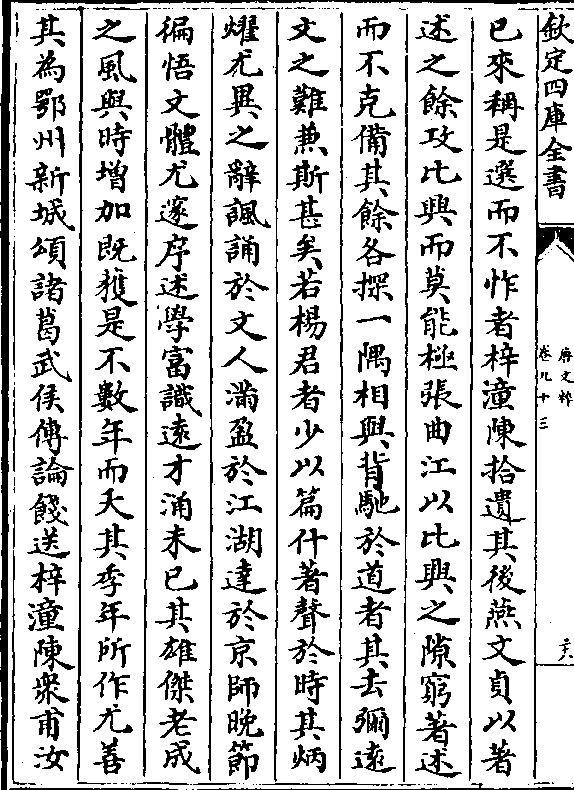 欽定四庫全書
唐文粹
卷九十三
二十八
已來稱是選而不怍者梓潼陳拾遺其後燕文貞以著
述之餘攻比興而莫能極張曲江以比興之隙窮著述
而不克備其餘各探一隅相與背馳於道者其去彌遠
文之難兼斯甚矣若楊君者少以篇什著聲於時其炳
燿尤異之辭諷誦於文人滿盈於江湖達於京師晚節
徧悟文體尤邃序述學富識遠才涌未已其雄傑老成
之風與時增加既獲是不數年而夭其季年所作尤善
其為鄂州新城頌諸葛武侯傳論餞送梓潼陳衆甫汝